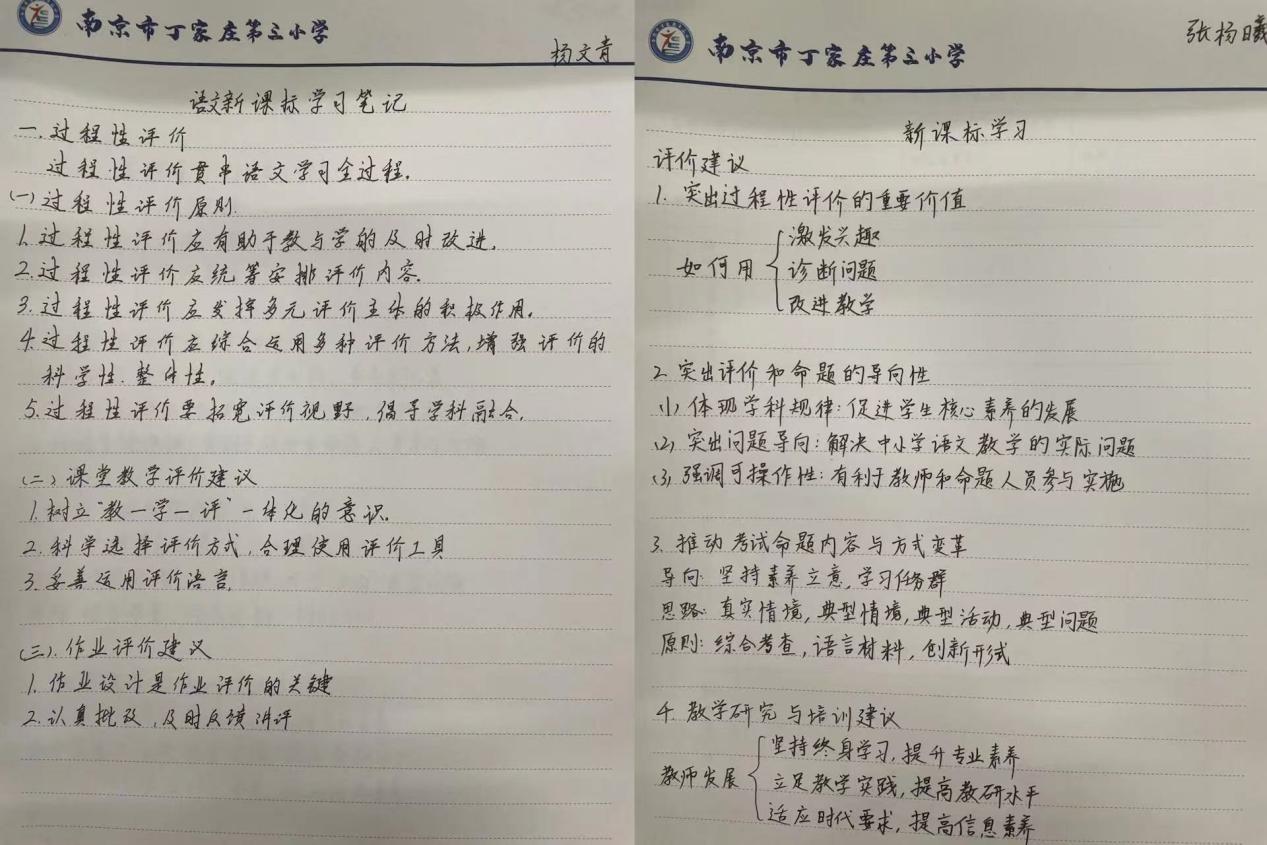 南京市丁家庄第三小学
杨文青
语文新课标学习笔记
一.过程性评价
过程性评价贯串语文学习全过程.
(一)过程性评价原则
1.过程性评价应有助于教与学的及时改进.
2.过程性评价应统筹安排评价内容.
3.过程性评价应发挥多元评价主体的积极作用.
4.过程性评价应综合运用多种评价方法,增强评价的
科学性.整体性.
5.过程性评价要拓宽评价视野,倡导学科融合.
(二)课堂教学评价建议
1.树立“教一学一评”一体化的意识.
2.科学选择评价方式,合理使用评价工具
3.妥善运用评价语言.
(三).作业评价建议
1.作业设计是作业评价的关键
2.认真批改,及时反馈讲评
南京市丁家庄第三小学
张杨曦
新课标学习
评价建议
1.突出过程性评价的重要价值
激发兴趣
如何用 诊断问题
改进教学
2.突出评价和命题的导向性
(1)体现学科规律:促进学生核心素养的发展
(2)突出问题导向:解决中小学语文教学的实际问题
(3)强调可操作性:有利于教师和命题人员参与实施
3.推动考试命题内容与方式变革
导向:坚持素养立意,学习任务群
思路:真实情境,典型情境,典型活动,典型问题
原则:综合考查,语言材料,创新形式
4.教学研究与培训建议
坚持终身学习,提升专业素养
教师发展 立足教学实践,提高教研水平
适应时代要求,提高信息素养